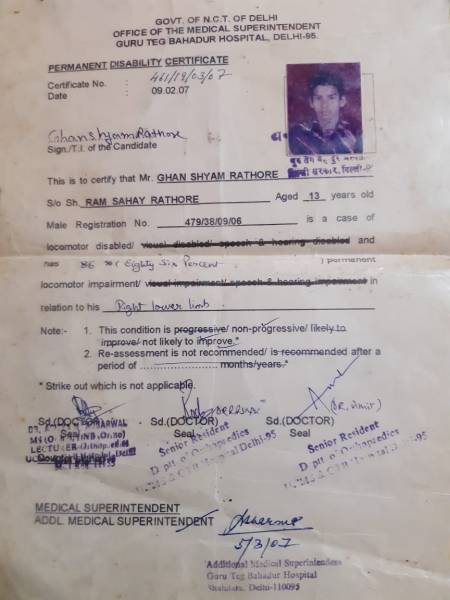 GOVT. OF N.C.T. OF DELHI
OFFICE OF THE MEDICAL SUPERINTENDENT
GURU TEG BAHADUR HOSPITAL, DELHI-95.
PERMANENT DISABILITY CERTIFICATE
Certificate No. : 461/19/03/07
Date : 09.02.07
Ghanshyam Rathore
Sign./T.I. of the Candidate
This is to certify that Mr. GHAN SHYAM RATHORE
S/o Sh. RAM SAHAY RATHORE Aged 13 years old
Male Registration No. 479/38/09/06 is a case of
locomotor disabled/ visual disabled/ speech & hearing disabled and
has 86 % ( Eighty Six Percent ) permanent
locomotor impairment/ visual impairment/ speech & hearing impairment in
relation to his Right lower limb
Note:- 1. This condition is progressive/ non-progressive/ likely to
improve/ not likely to improve.*
2. Re-assessment is not recommended/ is recommended after a
period of .................... months/years.*
* Strike out which is not applicable.
Sd.(DOCTOR) Sd.(DOCTOR) (DOCTOR)
Seal Seal Seal
(DR. Amit)
Senior Resident
Deptt. of Orthopaedics
Hospital Delhi-95
Senior Resident
Deptt. of Orthopaedics
UCMS & GTB Hospital Delhi-95
MEDICAL SUPERINTENDENT
ADDL. MEDICAL SUPERINTENDENT
5/3/07
Additional Medical Superintendent
Guru Teg Bahadur Hospital
Shahdara, Delhi-110095